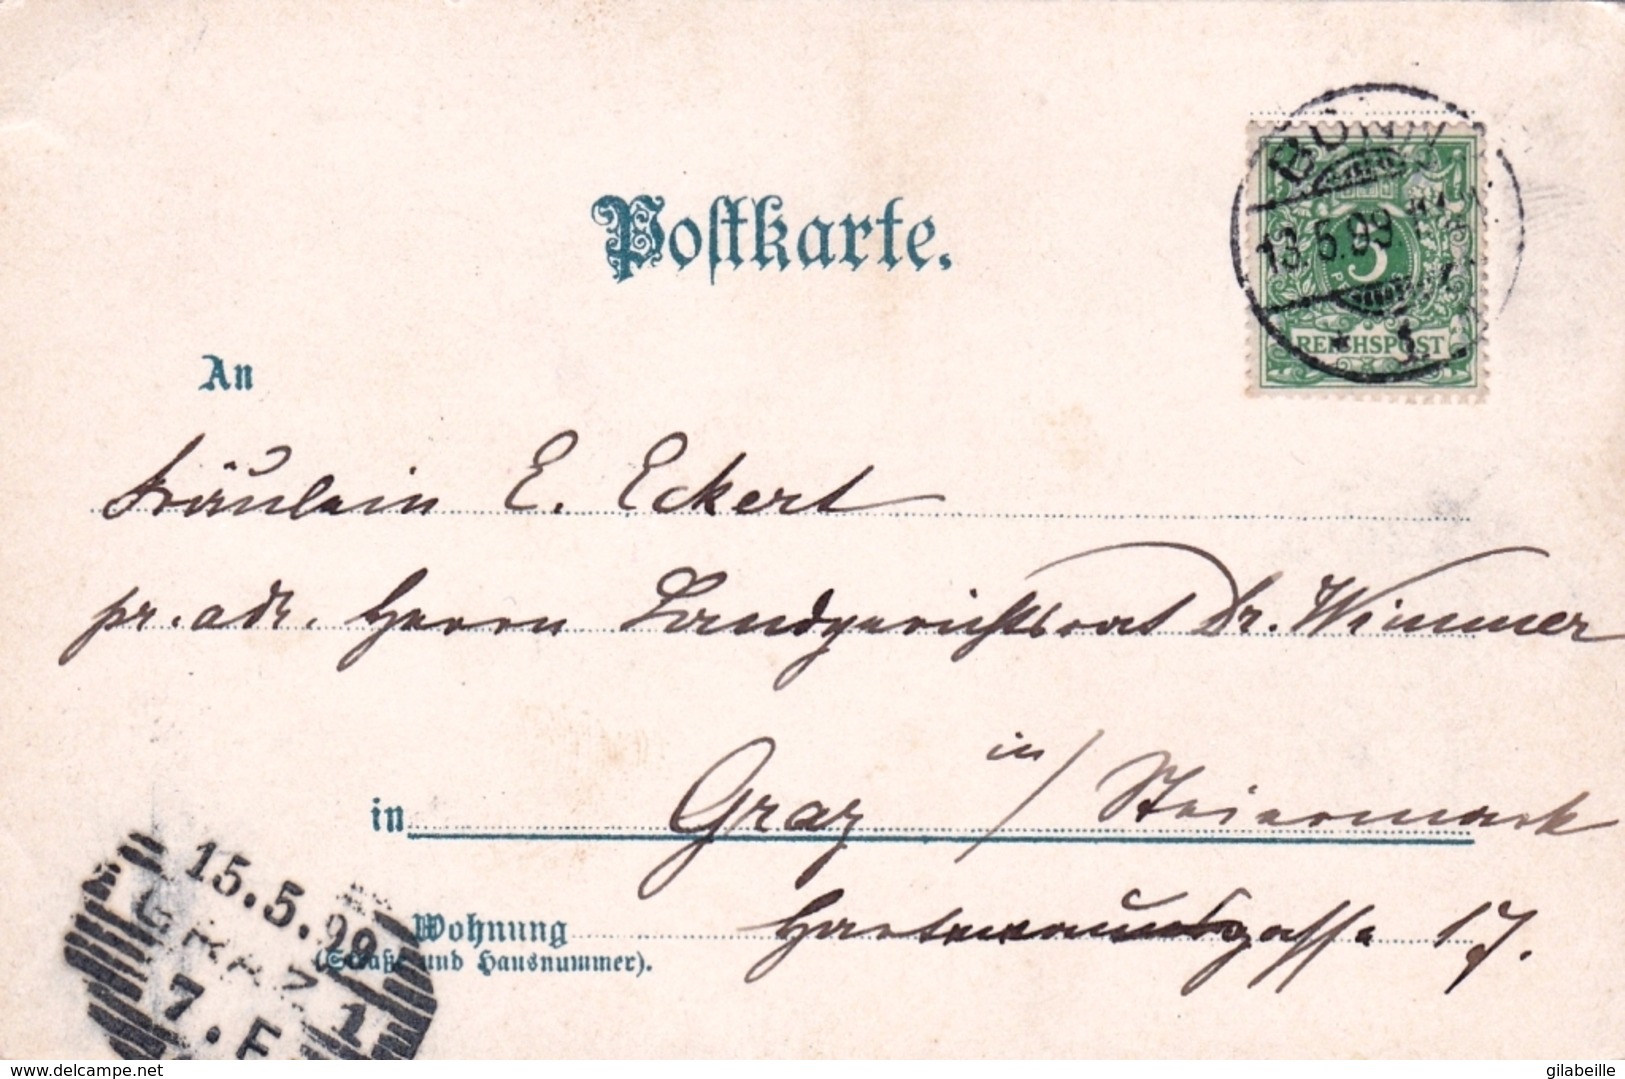 Postkarte.
BONN
13.5.99
5
REICHSPOST
An
Fräulein E. Eckert
pr. adr. Herrn Landgerichtsrat Dr. Wimmer
in Graz in / Steiermark
Wohnung
(Straße und Hausnummer).
17.
15.5.99
GRAZ 1
7. F
delcampe.net
gilabeille